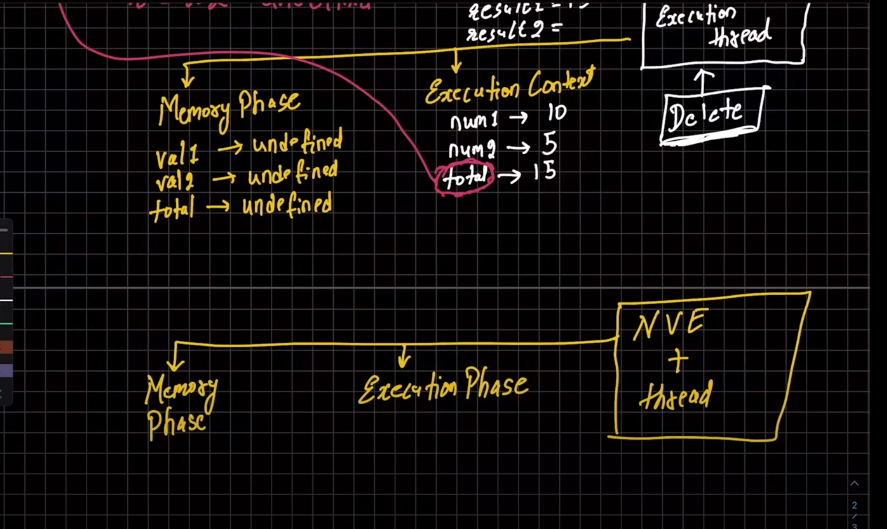 result2 =
Execution
thread
Memory Phase
val1 → undefined
val2 → undefined
total → undefined
Execution Context
num1 → 10
num2 → 5
total → 15
Delete
NVE
+
thread
Memory
Phase
Execution Phase
2
/
3